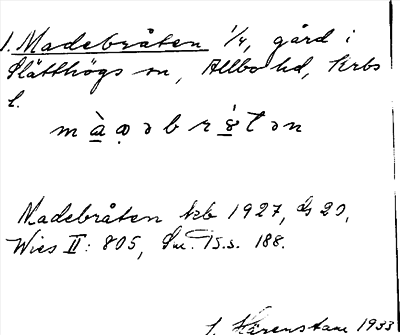 1. Madebråten 1/4, gård i
Slätthögs sn, Allbo hd, Krbs
l.
m à ạ ə b r ı̊ t ə n
Madebråten kb 1927, ds 20,
Wies II: 805, Sm. Ts.s. 188.
1933